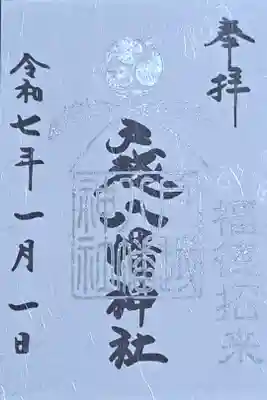 奉拝
福徳招来
八幡神社
令和七年一月一日